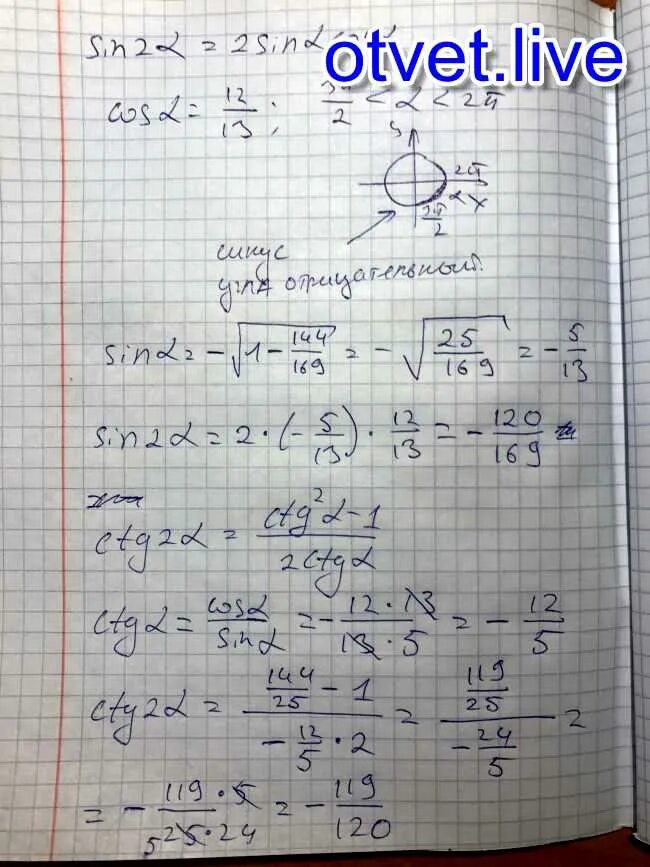 sin2α = 2sinα
otvet.live
cosα = 12/13 ; 3π/2 < α < 2π
y
2π
α x
3π/2
синус
угла отрицательный.
sinα = -√(1 - 144/169) = -√(25/169) = -5/13
sin2α = 2 · (-5/13) · 12/13 = -120/169
ctg2α = (ctg²α - 1)/(2ctgα)
ctgα = cosα/sinα = -(12 · 13)/(13 · 5) = -12/5
ctg2α = (144/25 - 1)/(-12/5 · 2) = (119/25)/(-24/5) =
= -(119 · 5)/(5 25 · 24) = -119/120